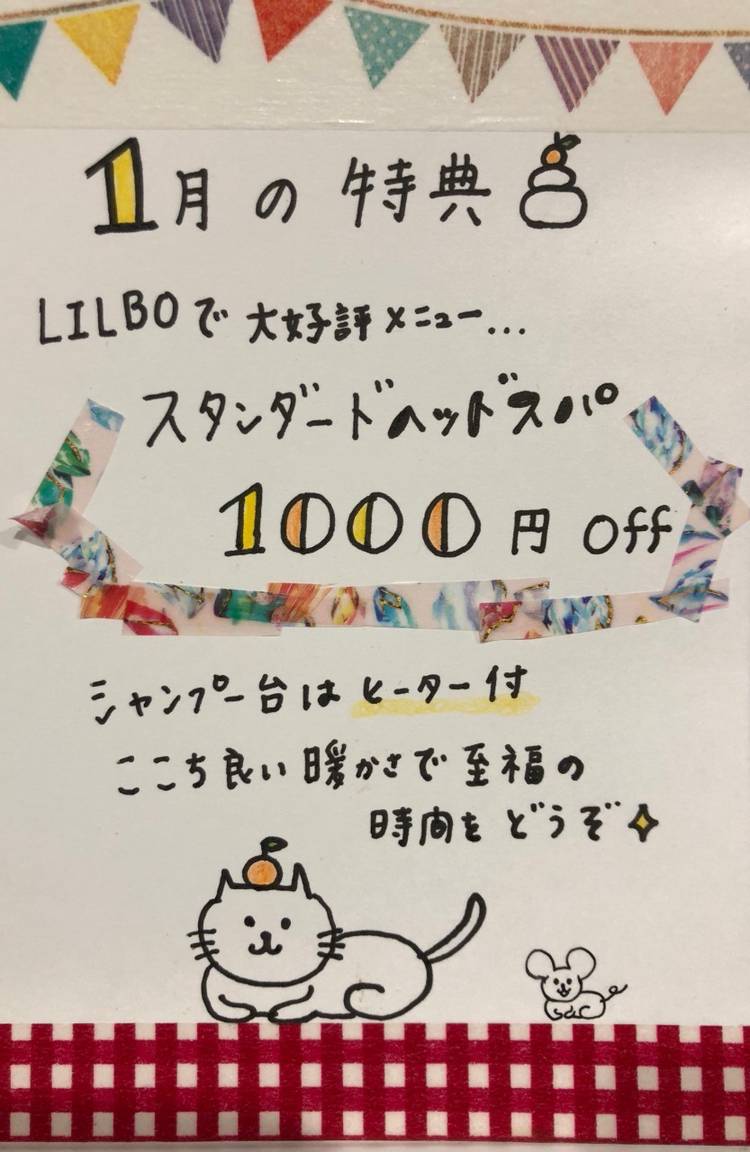 1月の特典
LILBOで大好評メニュー...
スタンダードヘッドスパ
1000円 Off
シャンプー台はヒーター付
ここち良い暖かさで至福の
時間をどうぞ